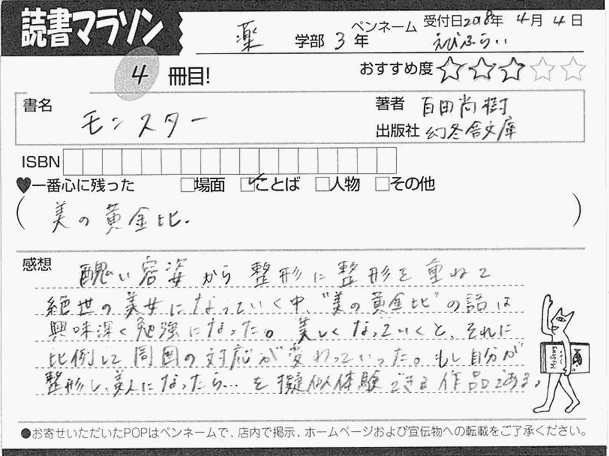 読書マラソン
薬 学部 3年 ペンネーム 受付日2018年 4月 4日
えびふらい
4 冊目! おすすめ度☆☆☆☆☆
書名 モンスター
著者 百田尚樹
出版社 幻冬舎文庫
ISBN
♥一番心に残った □場面 ☑ことば □人物 □その他
( 美の黄金比. )
感想
醜い容姿から整形に整形を重ねて
絶世の美女になっていく中、"美の黄金比"の話は
興味深く勉強になった。美しくなっていくと、それに
比例して周囲の対応が変わっていった。もし自分が
整形し、美人になったら…を擬似体験できる作品である。
●お寄せいただいたPOPはペンネームで、店内で掲示、ホームページおよび宣伝物への転載をご了承ください。